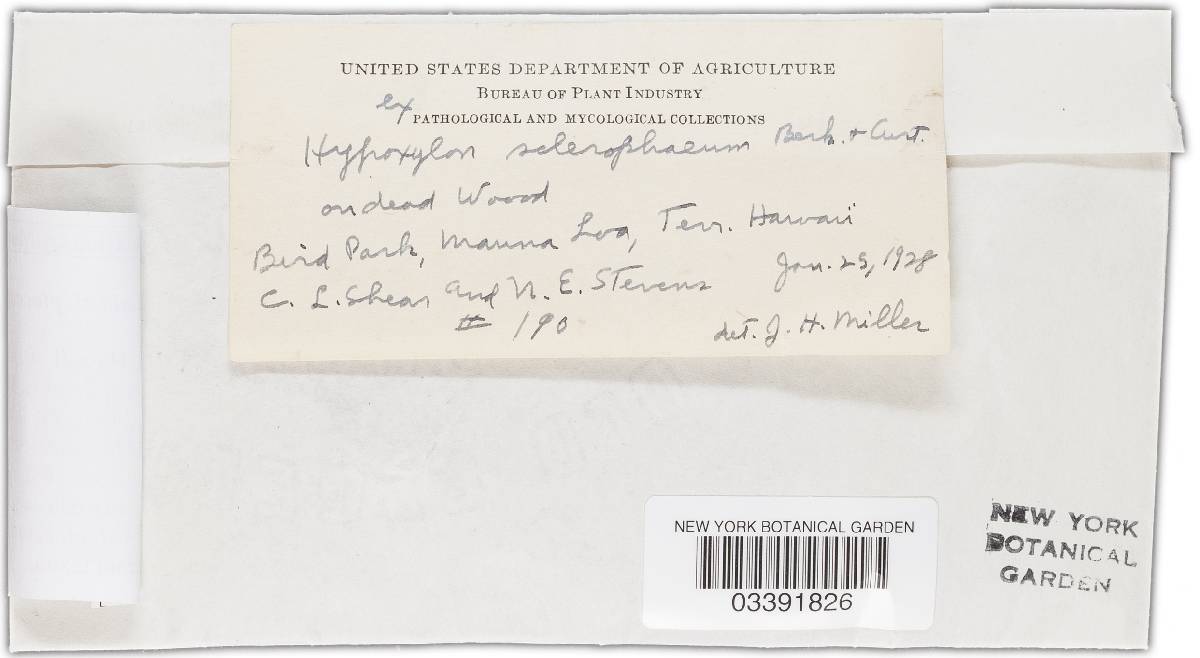 UNITED STATES DEPARTMENT OF AGRICULTURE
BUREAU OF PLANT INDUSTRY
ex
PATHOLOGICAL AND MYCOLOGICAL COLLECTIONS
Hypoxylon sclerophaeum Berk. & Curt.
on dead Wood
Bird Park, Mauna Loa, Terr. Hawaii
C. L. Shear and N. E. Stevens Jan. 25, 1928
# 190 det. J. H. Miller
NEW YORK BOTANICAL GARDEN
03391826
NEW YORK
BOTANICAL
GARDEN